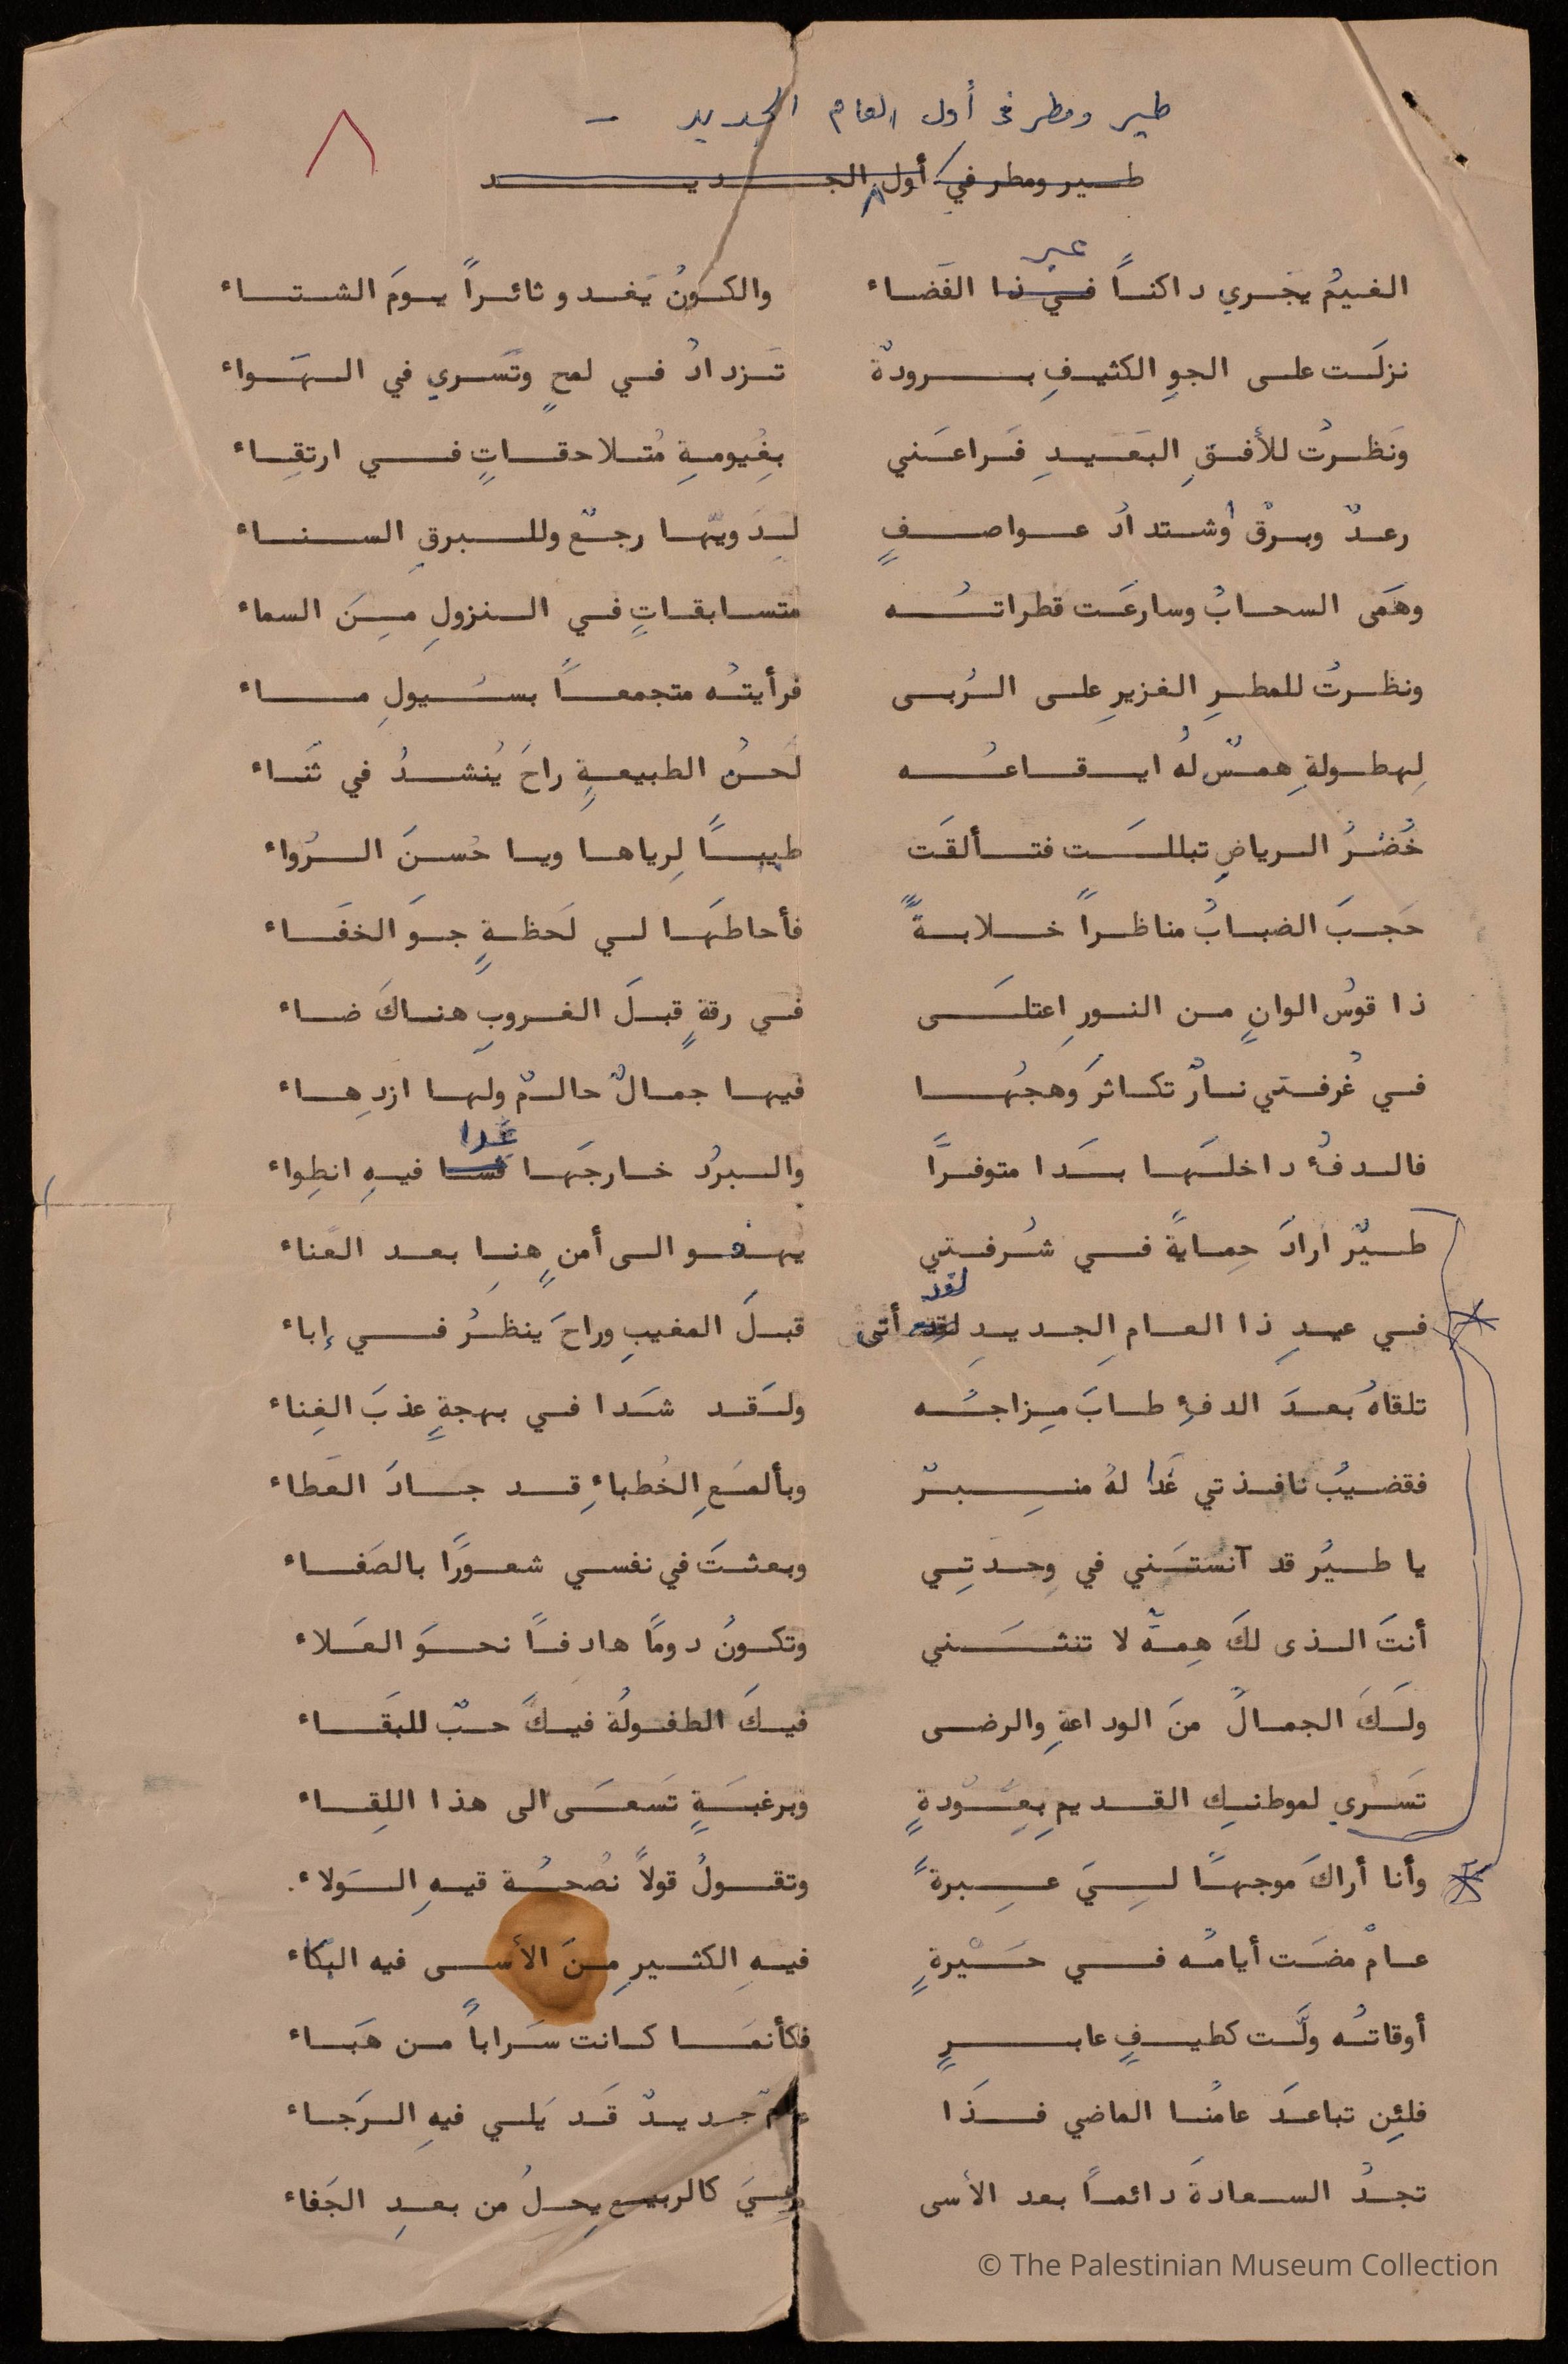 طير ومطر في أول العام الجديد -
٨
طير ومطر في أول الجديد
عبر
الغيمُ يجَري داكناً في ذا الفَضاء والكونُ يَغدو ثائراً يومَ الشتاء
نزلَت على الجوِ الكثيفِ برودةٌ تَزدادُ في لمحٍ وتَسري في الهَواء
ونَظرتُ للأفقِ البَعيدِ فَراعَني بغُيومةِ مُتلاحقاتٍ في ارتقِاء
رعدٌ وبرقٌ وُاشتدادُ عواصفٍ لِدَويّها رجعٌ وللبرقِ السناء
وهَمَى السحابُ وسارعَت قطراتُه متسابقاتٍ في النزولِ مِنَ السماء
ونظرتُ للمطرِ الغزيرِ على الرُبى فرأيتُه متجمعاً بسُيولِ ماء
لِهطولةِ همسٌ لهُ ايقاعُه لَحنُ الطبيعةِ راحَ يُنشدُ في ثَنَاء
خُضْرُ الرياضِ تبللَت فتألقَت طيباً لِرياها ويا حُسنَ الرُواء
حَجبَ الضبابُ مناظراً خلابةً فأحاطهَا لي لَحظةٍ جوَ الخفَاء
ذا قوسُ الوانٍ من النورِ اعتلَى في رقةٍ قبلَ الغروبِ هناكَ ضاء
في غُرفتي نارٌ تكاثرَ وهجُها فيها جمالٌ حالمٌ ولها ازدِهاء
غَدا
فالدفُ داخلَها بَدا متوفرًا والبردُ خارجَها قسا فيهِ انطِواء
طيرٌ ارادَ حِمايةً في شُرفتي يهفو الى أمنٍ هنِا بعد العَناء
لقد
في عيدِ ذا العامِ الجديدِ لقد أتى قبلَ المغيبِ وراحَ ينظرُ في إباء
تلقاهُ بَعدَ الدفءِ طابَ مِزاجُه ولَقد شَدا في بهجةٍ عذبَ الغِناء
فقضيبُ نافذتي غَدا لهُ منبِرٌ وبألمَعِ الخُطباءِ قد جادَ العَطاء
يا طيرُ قد آنستَني في وِحدتِي وبعثتَ في نفسي شعورًا بالصَفاء
أنتَ الذى لكَ هِمةٌ لا تنثَني وتكونُ دومًا هادفاً نحوَ العَلاء
ولَكَ الجمالُ منَ الوداعةِ والرضى فيكَ الطفولُة فيكَ حبٌ للبَقاء
تَسري لموطنِك القديمِ بِعَوْدةٍ وبرغبَةٍ تَسعَى الى هذا اللِقاء
وأنا أراكَ موجهًا لِيَ عِبرةً وتقولُ قولاً نُصحُة فيهِ الوَلاء.
عامٌ مضَت أيامُه في حَيْرةٍ فيهِ الكثيرِ مِنَ الأسى فيه البكاء
أوقاتُه ولَّت كطيفٍ عابرٍ فكأنمَا كانت سَراباً من هَبَاء
فلئِن تباعدَ عامُنا الماضي فذَا عامٌ جديدٌ قَد يَلي فيهِ الرَجاء
تجدُ السعادةَ دائماً بعد الأسى وهِيَ كالربيعِ يحلُ من بعدِ الجَفاء
© The Palestinian Museum Collection